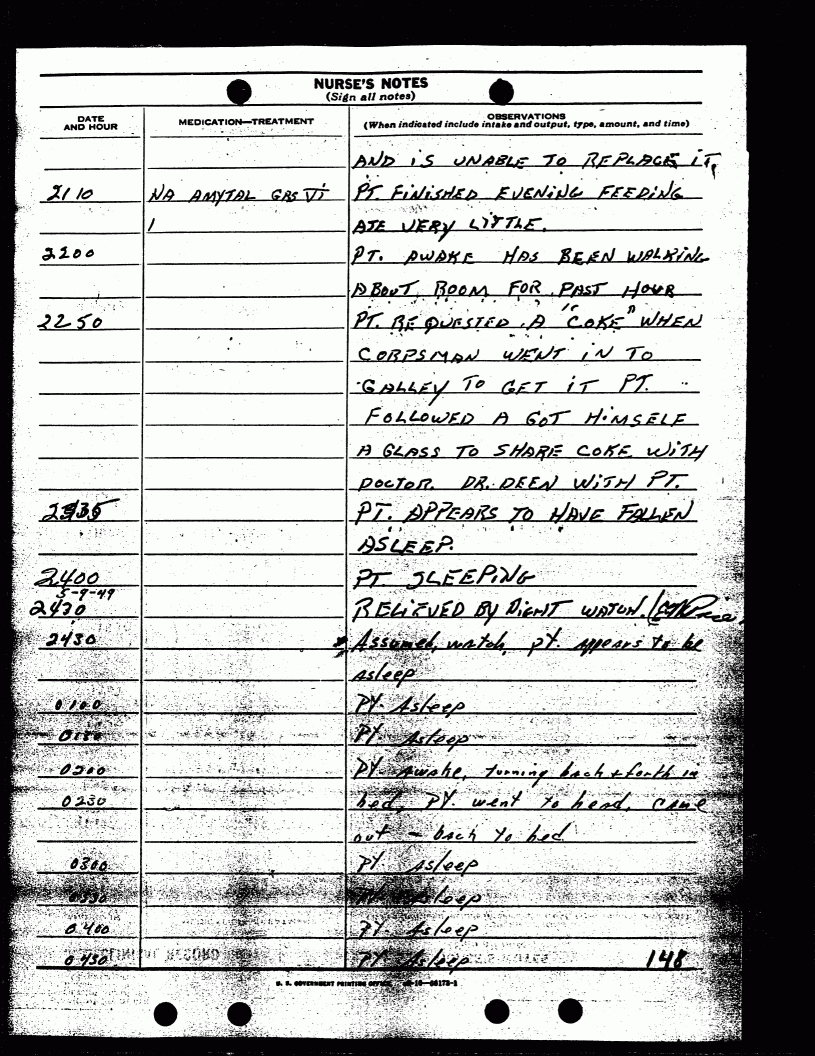 NURSE'S NOTES
(Sign all notes)
DATE AND HOUR MEDICATION—TREATMENT OBSERVATIONS (When indicated include intake and output, type, amount, and time)
AND IS UNABLE TO REPLACE IT.
2110 NA AMYTAL GRS VI PT. FINISHED EVENING FEEDING
1 ATE VERY LITTLE.
2200 PT. AWAKE HAS BEEN WALKING
ABOUT ROOM FOR PAST HOUR
2250 PT. REQUESTED A "COKE" WHEN
CORPSMAN WENT IN TO
GALLEY TO GET IT PT.
FOLLOWED A GOT HIMSELF
A GLASS TO SHARE COKE WITH
DOCTOR. DR. DEEN WITH PT.
2335 PT. APPEARS TO HAVE FALLEN
ASLEEP.
2400 PT SLEEPING
5-9-49
2430 RELIEVED BY NIGHT WATCH. Price
2430 Assumed watch, pt. appears to be
asleep
0100 Pt. Asleep
0130 Pt. Asleep
0200 Pt. Awake, turning back & forth in
0230 bed, Pt. went to head, came
out – back to bed
0300 Pt. Asleep
0330 Pt. Asleep
0400 Pt. Asleep
0430 Pt. Asleep 148
U. S. GOVERNMENT PRINTING OFFICE